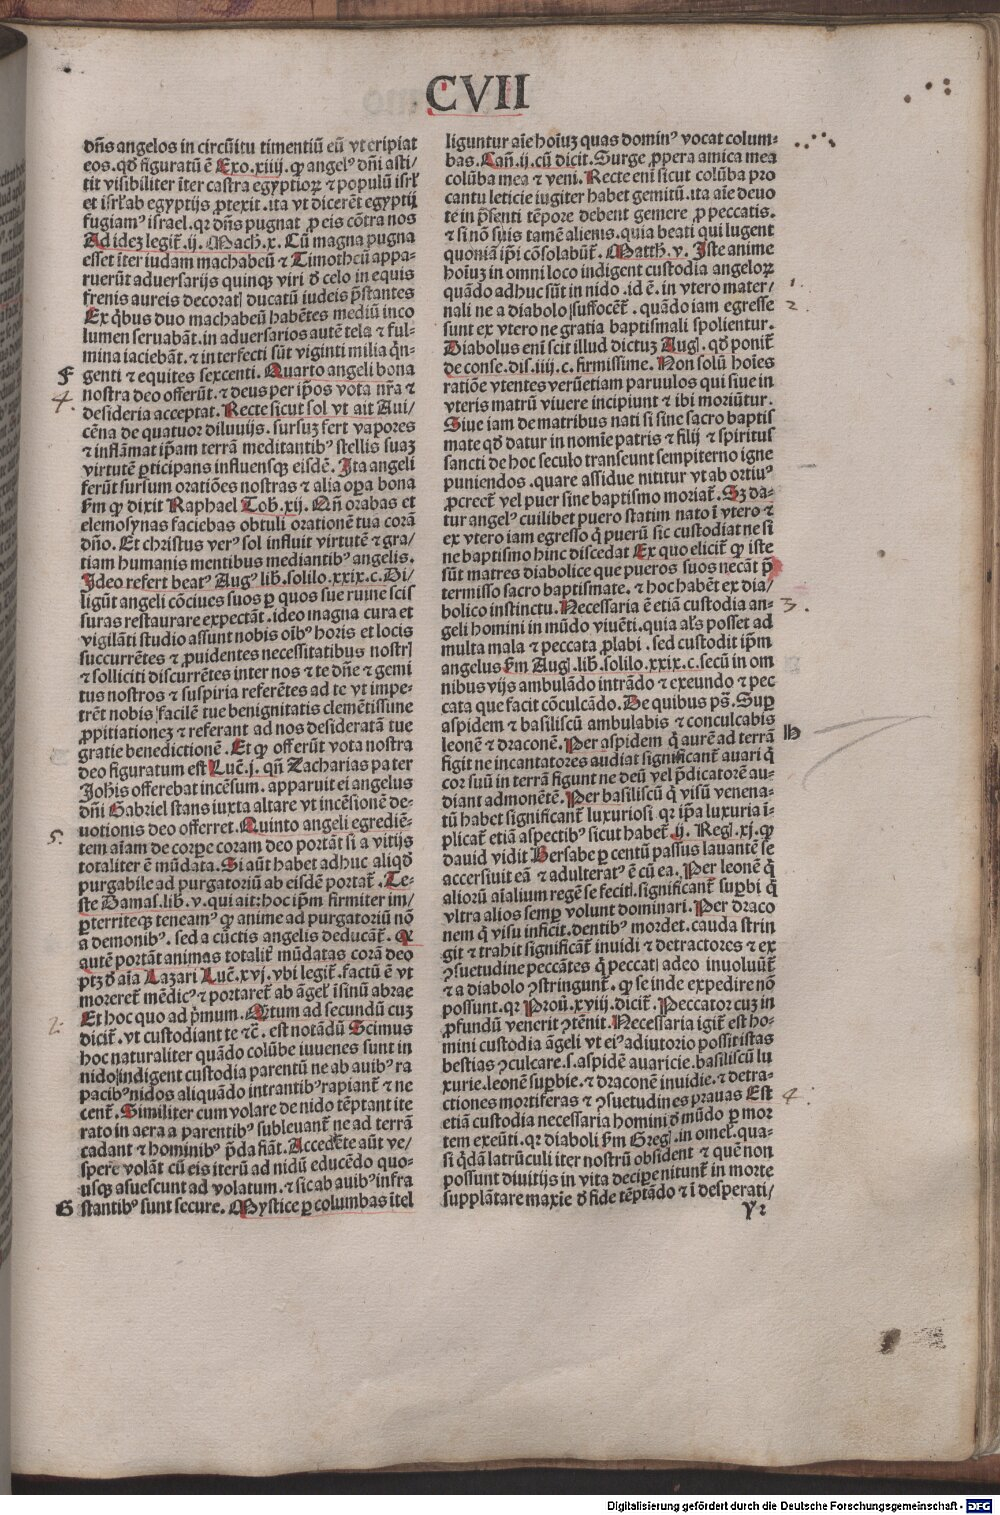 CVII
dn̄s angelos in circūitu timentiū eū vt eripiat
eos. qd̄ figuratū ē Exo. xiiij. ꝙ angelꝰ dn̄i asti/
tit visibiliter īter castra egyptioꝝ ⁊ populū isrł
et isrł ab egyptijs ꝓtexit. ita vt dicerēt egyptij
fugiamꝰ israel. qꝛ dn̄s pugnat ꝓ eis cōtra nos
Ad idez legit̄. ij. Mach. x. Cū magna pugna
esset īter iudam machabeū ⁊ Timotheū appa-
ruerūt aduersarijs quinqꝫ viri d̄ celo in equis
frenis aureis decorati ducatū iudeis p̄stantes
Ex q̇bus duo machabeū habētes mediū inco
lumen seruabāt. in aduersarios autē tela ⁊ ful-
mina iaciebāt. ⁊ interfecti sūt viginti milia q̇n-
F genti ⁊ equites sexcenti. Quarto angeli bona
4. nostra deo offerūt. ⁊ deus per ip̄os vota nr̄a ⁊
desideria acceptat. Recte sicut sol vt ait Aui/
cēna de quatuor diluuijs. sursuꝫ fert vapores
⁊ inflāmat ip̄am terrā meditantibꝰ stellis suaꝫ
virtutē ꝑticipans influensqꝫ eisdē. Ita angeli
ferūt sursum oratiōes nostras ⁊ alia oꝑa bona
ẜm ꝙ dixit Raphael Tob. xij. Qn̄ orabas et
elemosynas faciebas obtuli orationē tua corā
dn̄o. Et christus verꝰ sol influit virtutē ⁊ gra/
tiam humanis mentibus mediantibꝰ angelis.
Ideo refert beatꝰ Augꝰ lib. solilo. xxix. c. Di/
ligūt angeli cōciues suos ꝑ quos sue ruine scis
suras restaurare expectāt. ideo magna cura et
vigilāti studio assunt nobis oībꝰ horis et locis
succurrētes ⁊ ꝓuidentes necessitatibus nostri
⁊ solliciti discurrētes inter nos ⁊ te dn̄e ⁊ gemi
tus nostros ⁊ suspiria referētes ad te vt impe-
trēt nobis facilē tue benignitatis clemētissime
ꝓpitiationeꝫ ⁊ referant ad nos desideratā tue
gratie benedictionē. Et ꝙ offerūt vota nostra
deo figuratum est Luc̄. j. qn̄ Zacharias pater
Johis offerebat incēsum. apparuit ei angelus
dn̄i Gabriel stans iuxta altare vt incēsionē de-
5. uotionis deo offerret. Quinto angeli egrediē-
tem aīam de corꝑe coram deo portāt si a vitijs
totaliter ē mūdata. Si aūt habet adhuc aliqd̄
purgabile ad purgatoriū ab eisdē portat̄. Te-
ste Damas. lib. v. qui ait: hoc ip̄m firmiter im/
ꝑterriteqꝫ teneamꝰ ꝙ anime ad purgatoriū nō
a demonibꝰ. sed a cūctis angelis deducāt̄. Q
autē portāt animas totalit̄ mūdatas corā deo
ptꝫ d̄ aīa Lazari Luc̄. xvj. vbi legit̄. factū ē vt
moreret̄ mēdicꝰ ⁊ portaret̄ ab āgeł īsinū abrae
Et hoc quo ad p̄mum. Q̄tum ad secundū cuꝫ
2. dicit̄. vt custodiant te ⁊c̄. est notādū Scimus
hoc naturaliter quādo colūbe iuuenes sunt in
nido indigent custodia parentū ne ab auibꝰ ra
pacibꝰ nidos aliquādo intrantibꝰ rapiant̄ ⁊ ne
cent̄. Similiter cum volare de nido tēptant ite
rato in aera a parentibꝰ subleuant̄ ne ad terrā
cadant ⁊ hominibꝰ p̄da fiāt. Accedēte aūt ve/
spere volāt cū eis iterū ad nidū educēdo quo-
usqꝫ asuescunt ad volatum. ⁊ sic ab auibꝰ infra
G stantibꝰ sunt secure. Mystice ꝑ columbas ītel
liguntur aīe hoīuꝫ quas dominꝰ vocat colum-
bas. Can̄. ij. cū dicit. Surge ꝓpera amica mea
colūba mea ⁊ veni. Recte enī sicut colūba pro
cantu leticie iugiter habet gemitū. ita aīe deuo
te in p̄senti tēpore debent gemere ꝓ peccatis.
⁊ si nō suis tamē alienis. quia beati qui lugent
quoniā ip̄i cōsolabūt̄. Matth. v. Iste anime
hoīuꝫ in omni loco indigent custodia angeloꝝ
quādo adhuc sūt in nido. id ē. in vtero mater/ 1.
nali ne a diabolo suffocēt̄. quādo iam egresse 2
sunt ex vtero ne gratia baptismali spolientur.
Diabolus enī scit illud dictuꝫ Augl. qd̄ ponit̄
de conse. dis. iiij. c. firmissime. Non solū hoīes
ratiōe vtentes verūetiam paruulos qui siue in
vteris matrū viuere incipiunt ⁊ ibi moriūtur.
Siue iam de matribus nati si sine sacro baptis
mate qd̄ datur in nomīe patris ⁊ filij ⁊ spiritus
sancti de hoc seculo transeunt sempiterno igne
puniendos. quare assidue nititur vt ab ortiuꝰ
ꝓcrect̄ vel puer sine baptismo moriat̄. Sꝫ da-
tur angelꝰ cuilibet puero statim nato ī vtero ⁊
ex vtero iam egresso q̇ puerū sic custodiat ne si
ne baptismo hinc discedat Ex quo elicit̄ ꝙ iste
sūt matres diabolice que pueros suos necāt p̄
termisso sacro baptismate. ⁊ hoc habēt ex dia/
bolico instinctu. Necessaria ē etiā custodia an- 3.
geli homini in mūdo viuēti. quia als posset ad
multa mala ⁊ peccata ꝓlabi. sed custodit ip̄m
angelus ẜm Augl. lib. solilo. xxix. c. secū in om
nibus vijs ambulādo intrādo ⁊ exeundo ⁊ pec
cata que facit cōculcādo. De quibus ps̄. Suꝑ
aspidem ⁊ basiliscū ambulabis ⁊ conculcabis
leonē ⁊ draconē. Per aspidem q̇ aurē ad terrā H
figit ne incantatores audiat significant̄ auari q̇
cor suū in terrā figunt ne deū vel p̄dicatorē au-
diant admonētē. Per basiliscū q̇ visū venena-
tū habet significant̄ luxuriosi qꝛ ip̄a luxuria ī-
plicat̄ etiā aspectibꝰ sicut habet̄. ij. Regl. xj. ꝙ
dauid vidit Bersabe ꝑ centū passus lauantē se
accersiuit eā ⁊ adulteratꝰ ē cū ea. Per leonē q̇
aliorū aīalium regē se fecit. significant̄ suꝑbi q̇
vltra alios semꝑ volunt dominari. Per draco
nem q̇ visu inficit. dentibꝰ mordet. cauda strin
git ⁊ trahit significāt̄ inuidi ⁊ detractores ⁊ ex
ꝯsuetudine peccātes q̇ peccati adeo inuoluūt̄
⁊ a diabolo ꝯstringunt̄. ꝙ se inde expedire nō
possunt. qꝛ Prou̇. xviij. dicit̄. Peccator cuꝫ in
ꝓfundū venerit ꝯtēnit. Necessaria igit̄ est ho-
mini custodia āgeli vt eiꝰ adiutorio possit istas
bestias ꝯculcare. s. aspidē auaricie. basiliscū lu
xurie. leonē suꝑbie. ⁊ draconē inuidie. ⁊ detra-
ctiones mortiferas ⁊ ꝯsuetudines prauas Est 4.
etiā custodia necessaria homini d̄ mūdo ꝑ mor
tem exeūti. qꝛ diaboli ẜm Gregl. in omel. qua-
si q̇dā latrūculi iter nostrū obsident ⁊ quē non
possunt diuitijs in vita deciꝑe nitunt̄ in morte
supplātare maxīe d̄ fide tēptādo ⁊ ī desperati/
y ꝛ
Digitalisierung gefördert durch die Deutsche Forschungsgemeinschaft - DFG